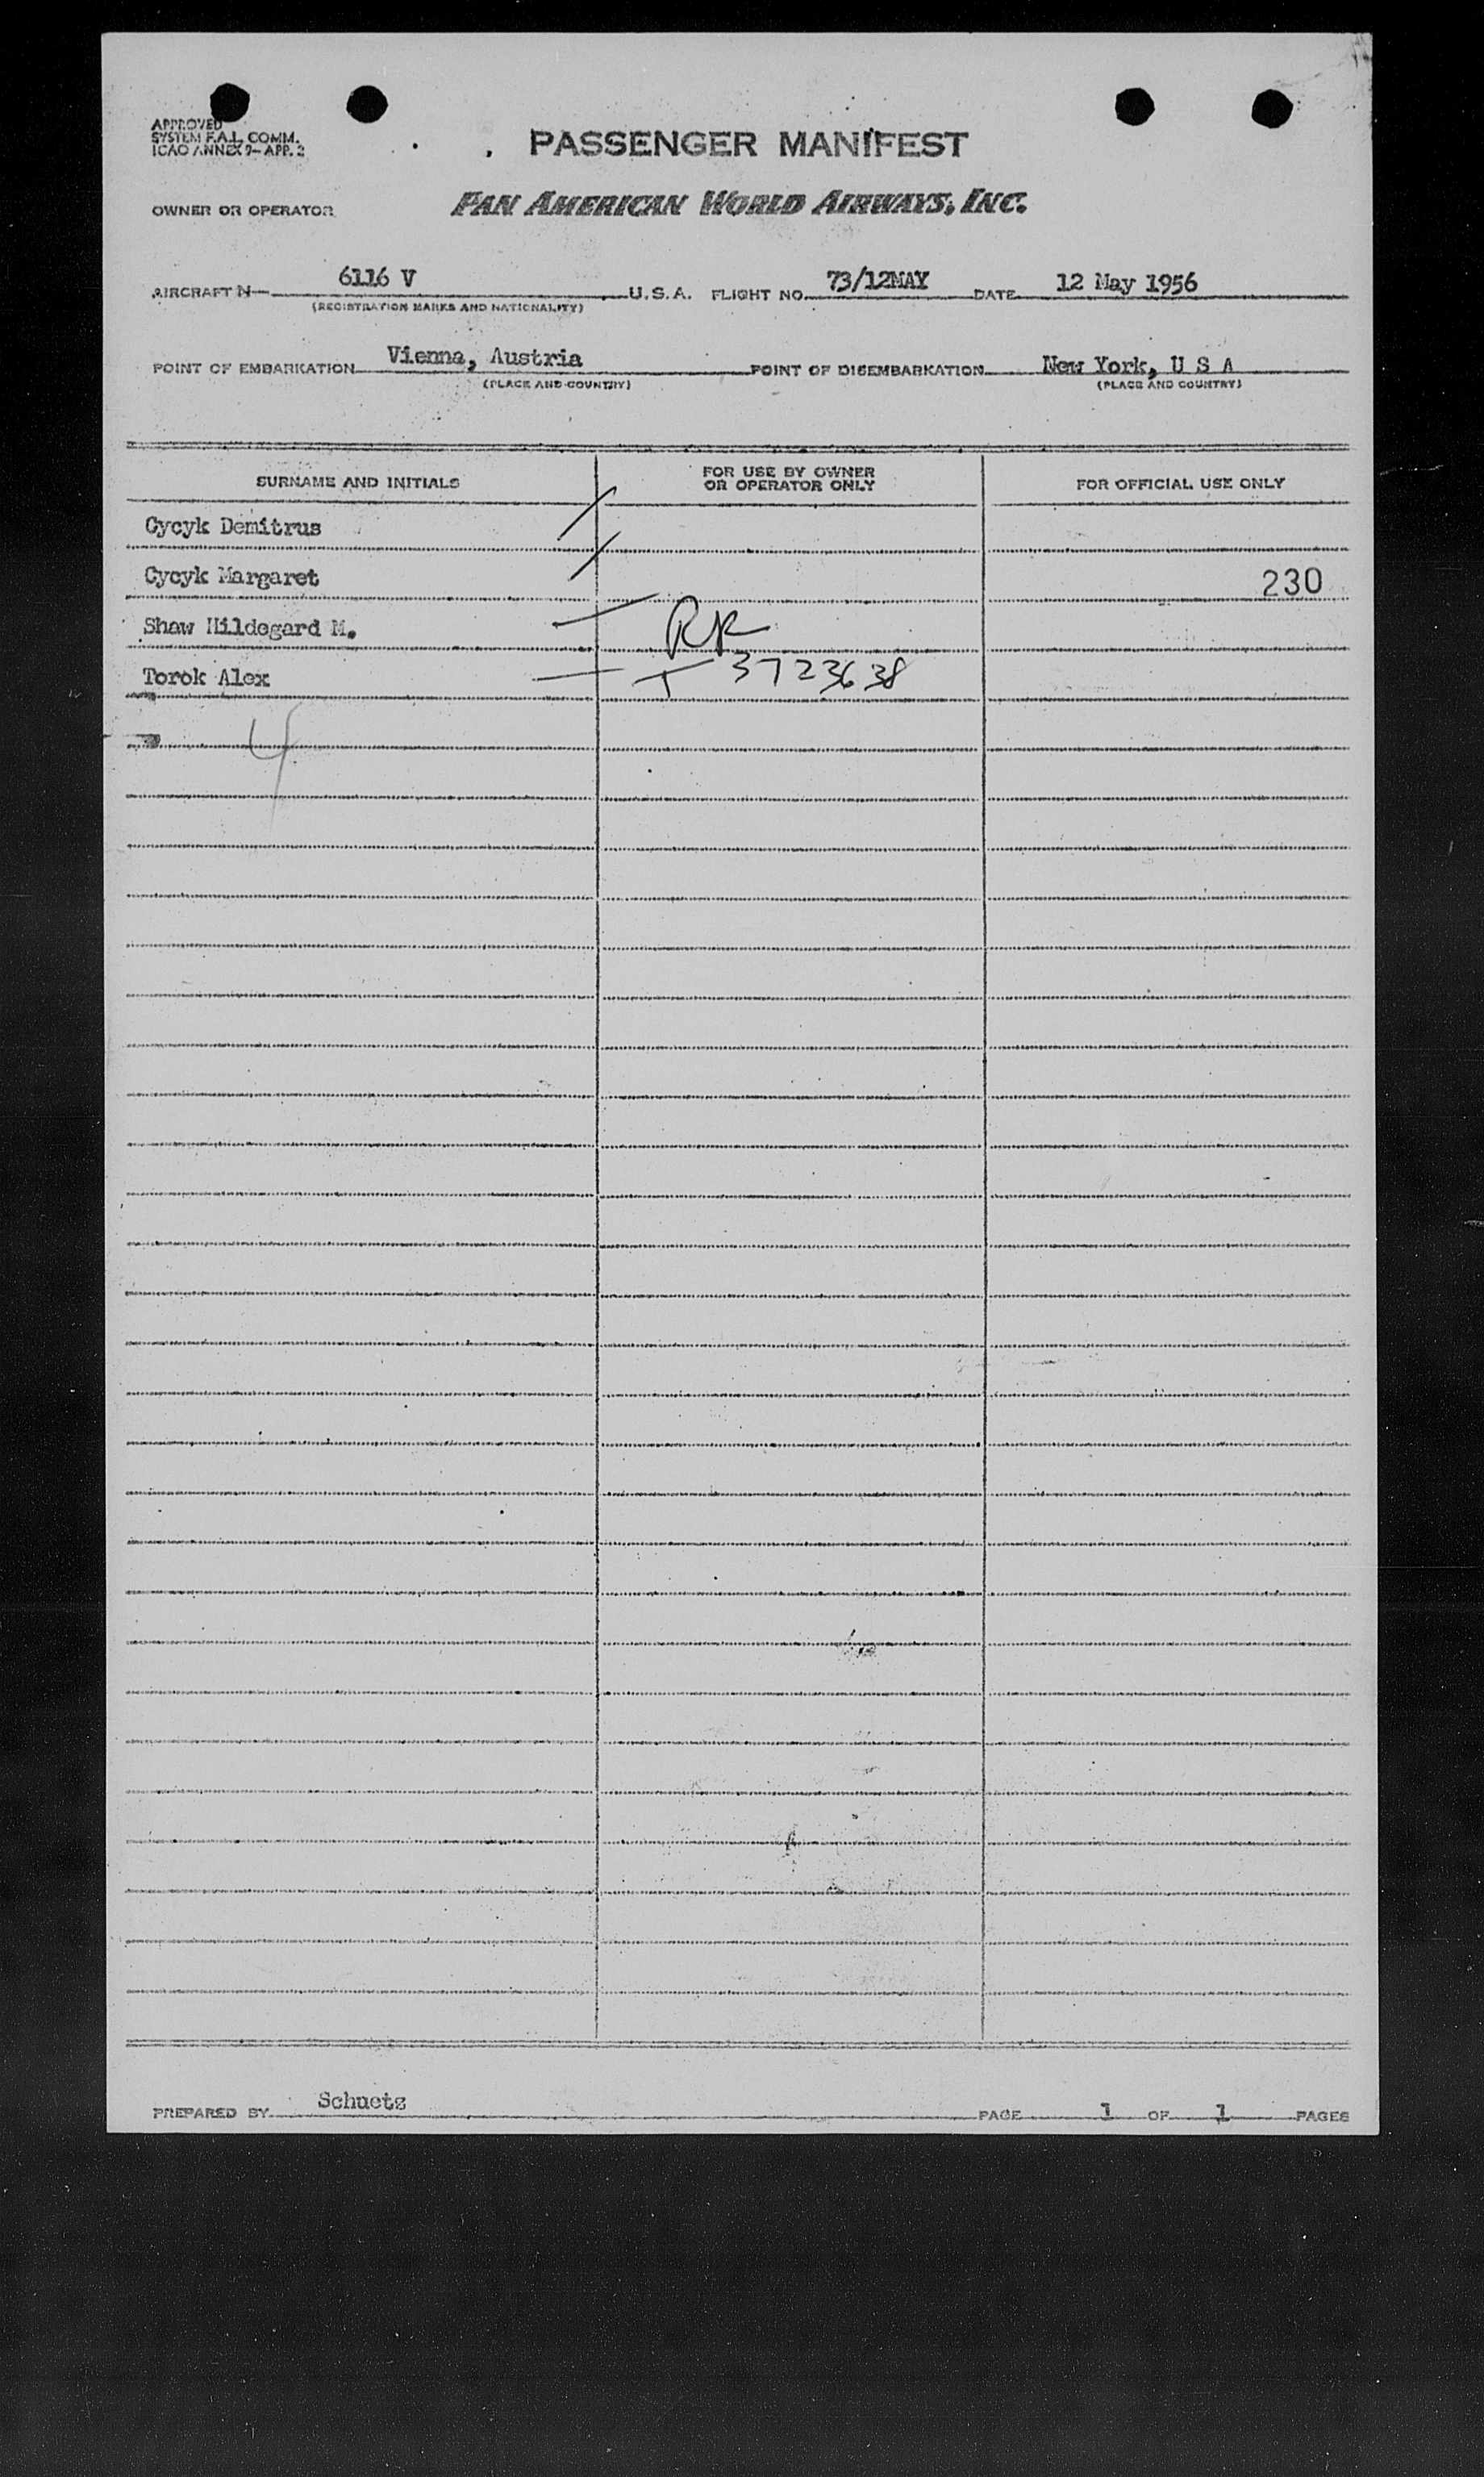 APPROVED
SYSTEM F.A.L. COMM.
ICAO ANNEX 9-APP. 2
PASSENGER MANIFEST
OWNER OR OPERATOR PAN AMERICAN WORLD AIRWAYS, INC.
AIRCRAFT N- 6116 V U.S.A. FLIGHT NO. 73/12MAY DATE 12 May 1956
(REGISTRATION MARKS AND NATIONALITY)
POINT OF EMBARKATION Vienna, Austria POINT OF DISEMBARKATION New York, U S A
(PLACE AND COUNTRY) (PLACE AND COUNTRY)
SURNAME AND INITIALS FOR USE BY OWNER OR OPERATOR ONLY FOR OFFICIAL USE ONLY
Cycyk Demitrus
Cycyk Margaret 230
Shaw Hildegard M. RR
Torok Alex T 3723638
4
PREPARED BY Schuetz PAGE 1 OF 1 PAGES